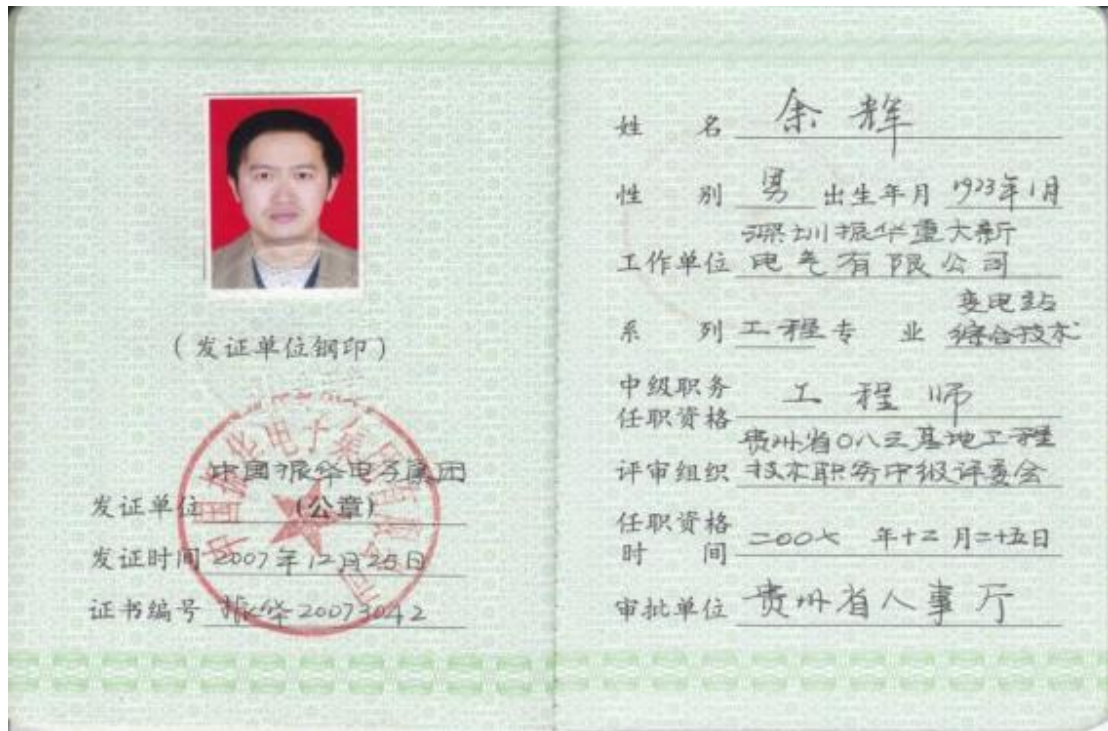 (发证单位钢印)
中国振华电子集团
发证单位 (公章)
发证时间 2007年12月25日
证书编号 振华20073042
姓 名 余辉
性 别 男 出生年月 1973年1月
深圳振华重大新
工作单位 电气有限公司
变电站
系 列 工程 专 业 综合技术
中级职务 工程师
任职资格
贵州省〇八三基地工程
评审组织 技术职务中级评委会
任职资格
时 间 二〇〇七 年十二月二十五日
审批单位 贵州省人事厅